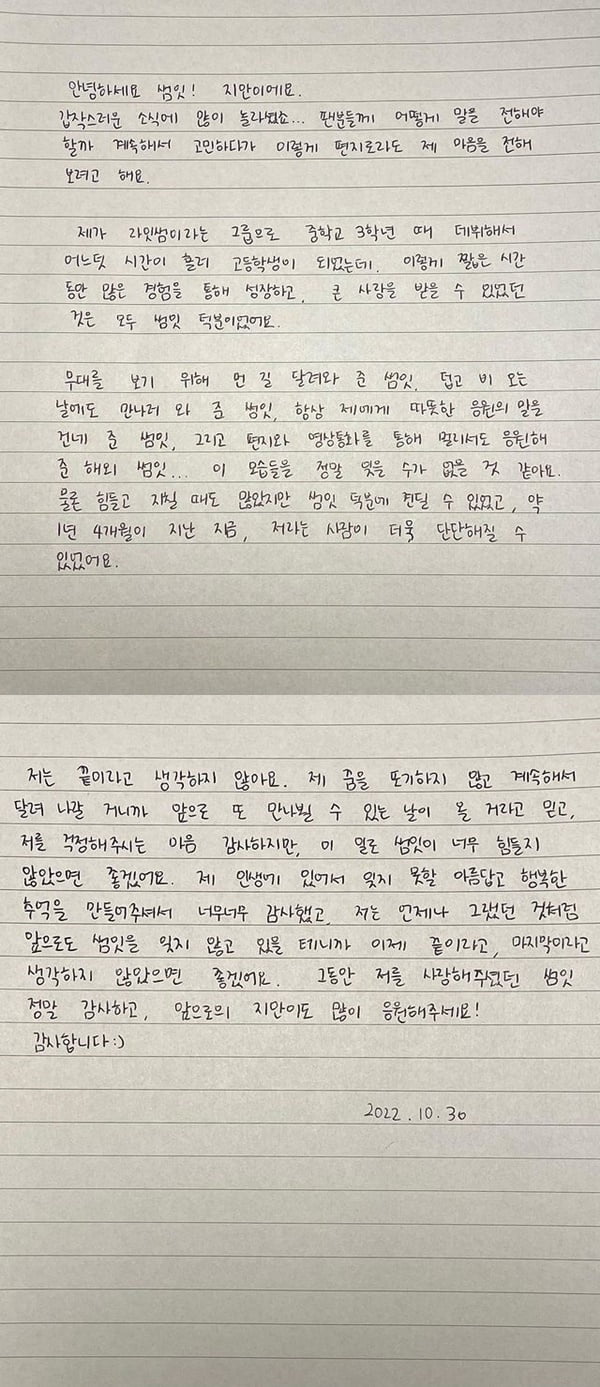 안녕하세요 썸잇! 지안이에요.
갑작스러운 소식에 많이 놀라셨죠... 팬분들께 어떻게 말을 전해야
할까 계속해서 고민하다가 이렇게 편지로라도 제 마음을 전해
보려고 해요.
제가 라잇썸이라는 그룹으로 중학교 3학년 때 데뷔해서
어느덧 시간이 흘러 고등학생이 되었는데, 이렇게 짧은 시간
동안 많은 경험을 통해 성장하고, 큰 사랑을 받을 수 있었던
것은 모두 썸잇 덕분이었어요.
무대를 보기 위해 먼 길 달려와 준 썸잇, 덥고 비 오는
날에도 만나러 와 준 썸잇, 항상 제에게 따뜻한 응원의 말을
건네 준 썸잇, 그리고 편지와 영상통화를 통해 멀리서도 응원해
준 해외 썸잇... 이 모습들을 정말 잊을 수가 없을 것 같아요.
물론 힘들고 지칠 때도 많았지만 썸잇 덕분에 견딜 수 있었고, 약
1년 4개월이 지난 지금, 저라는 사람이 더욱 단단해질 수
있었어요.
저는 끝이라고 생각하지 않아요. 제 꿈을 포기하지 않고 계속해서
달려 나갈 거니까 앞으로 또 만나뵐 수 있는 날이 올 거라고 믿고,
저를 걱정해주시는 마음 감사하지만, 이 일로 썸잇이 너무 힘들지
않았으면 좋겠어요. 제 인생에 있어서 잊지 못할 아름답고 행복한
추억을 만들어주셔서 너무너무 감사했고, 저는 언제나 그랬던 것처럼
앞으로도 썸잇을 잊지 않고 있을 테니까 이제 끝이라고, 마지막이라고
생각하지 않았으면 좋겠어요. 그동안 저를 사랑해주셨던 썸잇
정말 감사하고, 앞으로의 지안이도 많이 응원해주세요!
감사합니다:)
2022.10.30